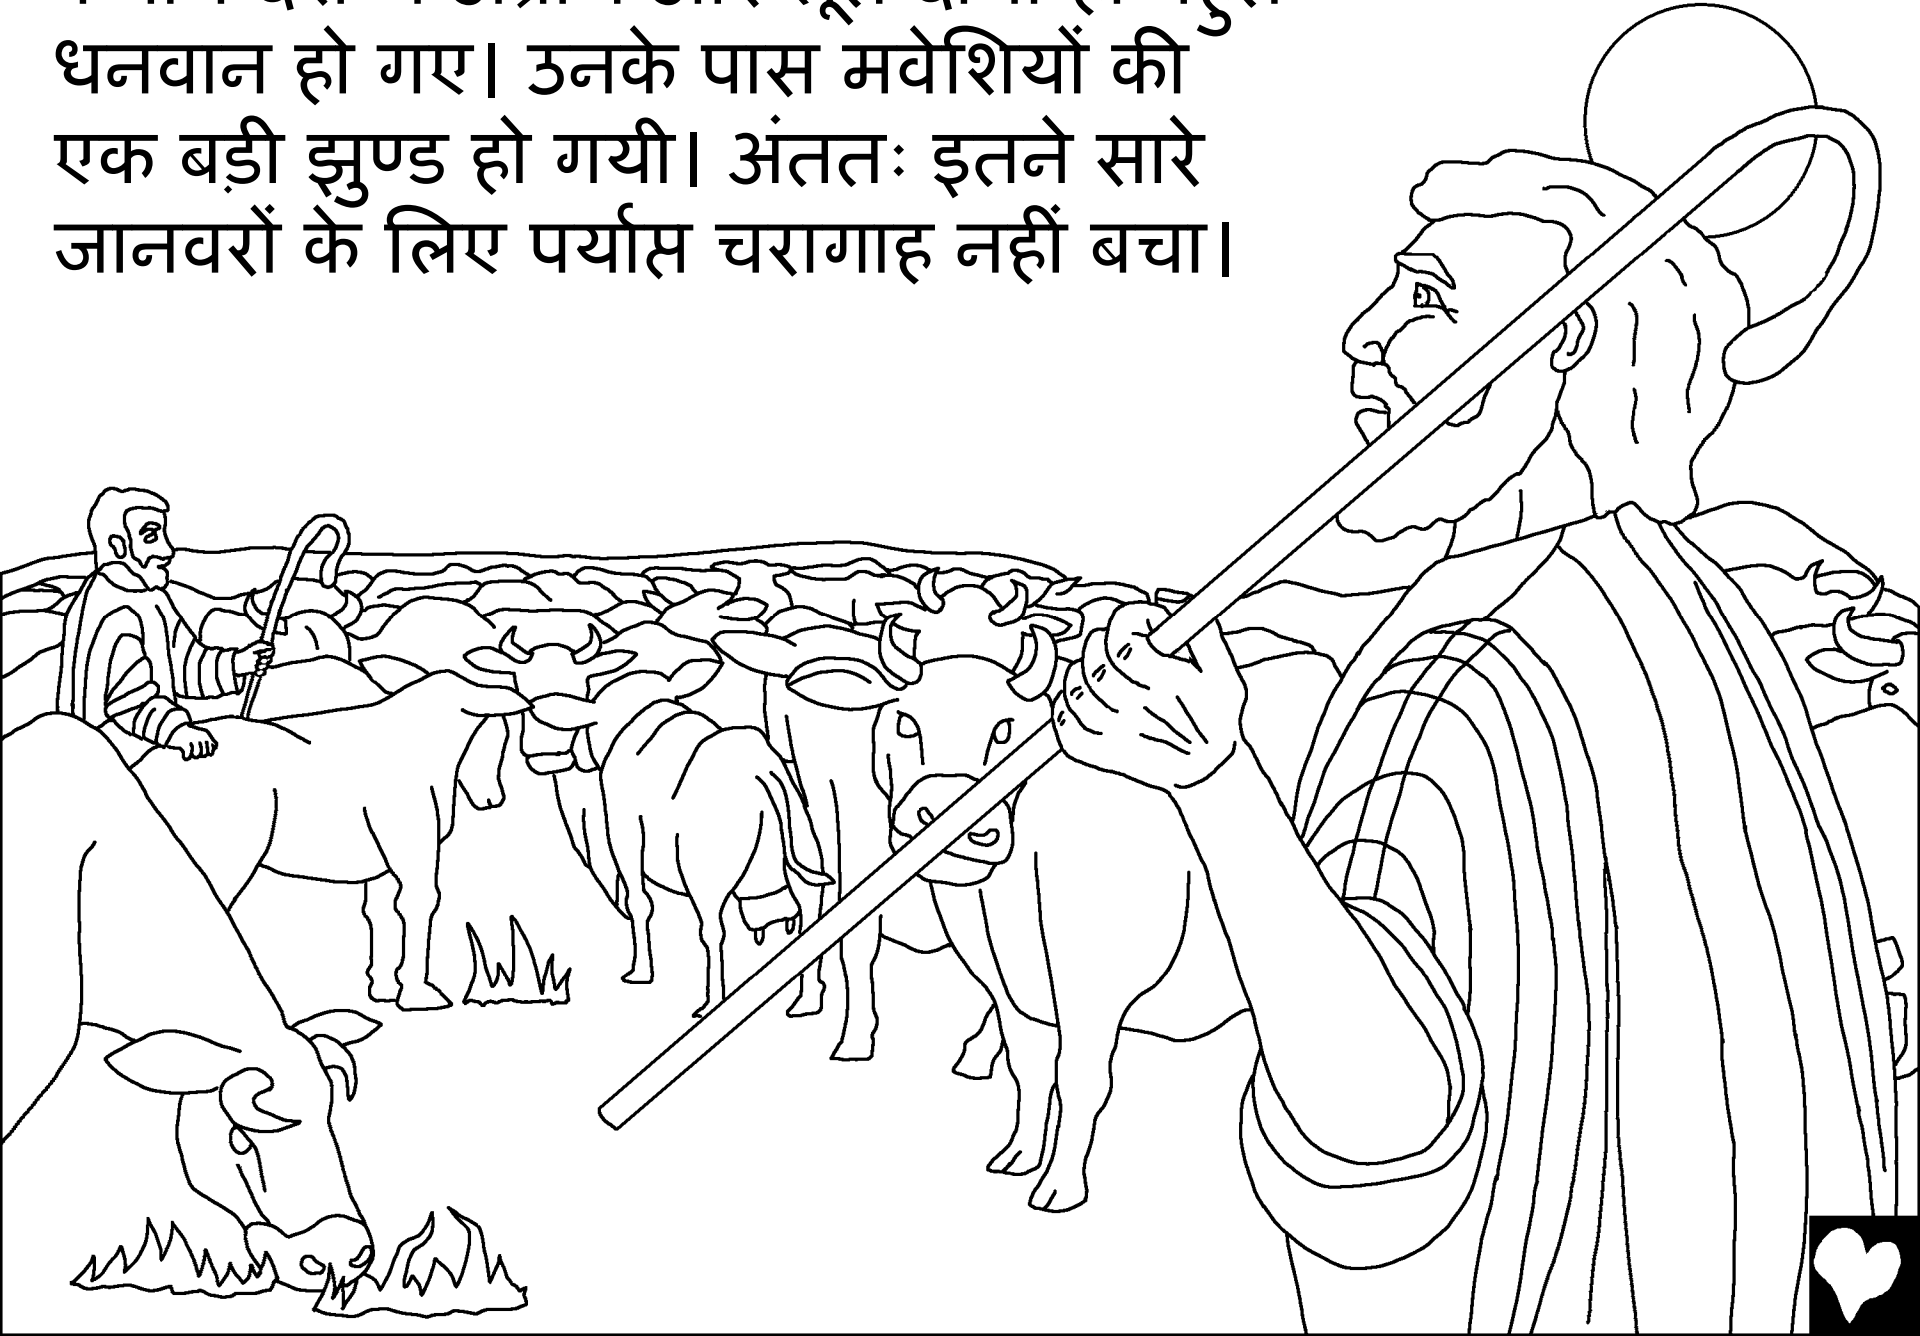 धनवान हो गए। उनके पास मवेशियों की
एक बड़ी झुण्ड हो गयी। अंततः इतने सारे
जानवरों के लिए पर्याप्त चरागाह नहीं बचा।